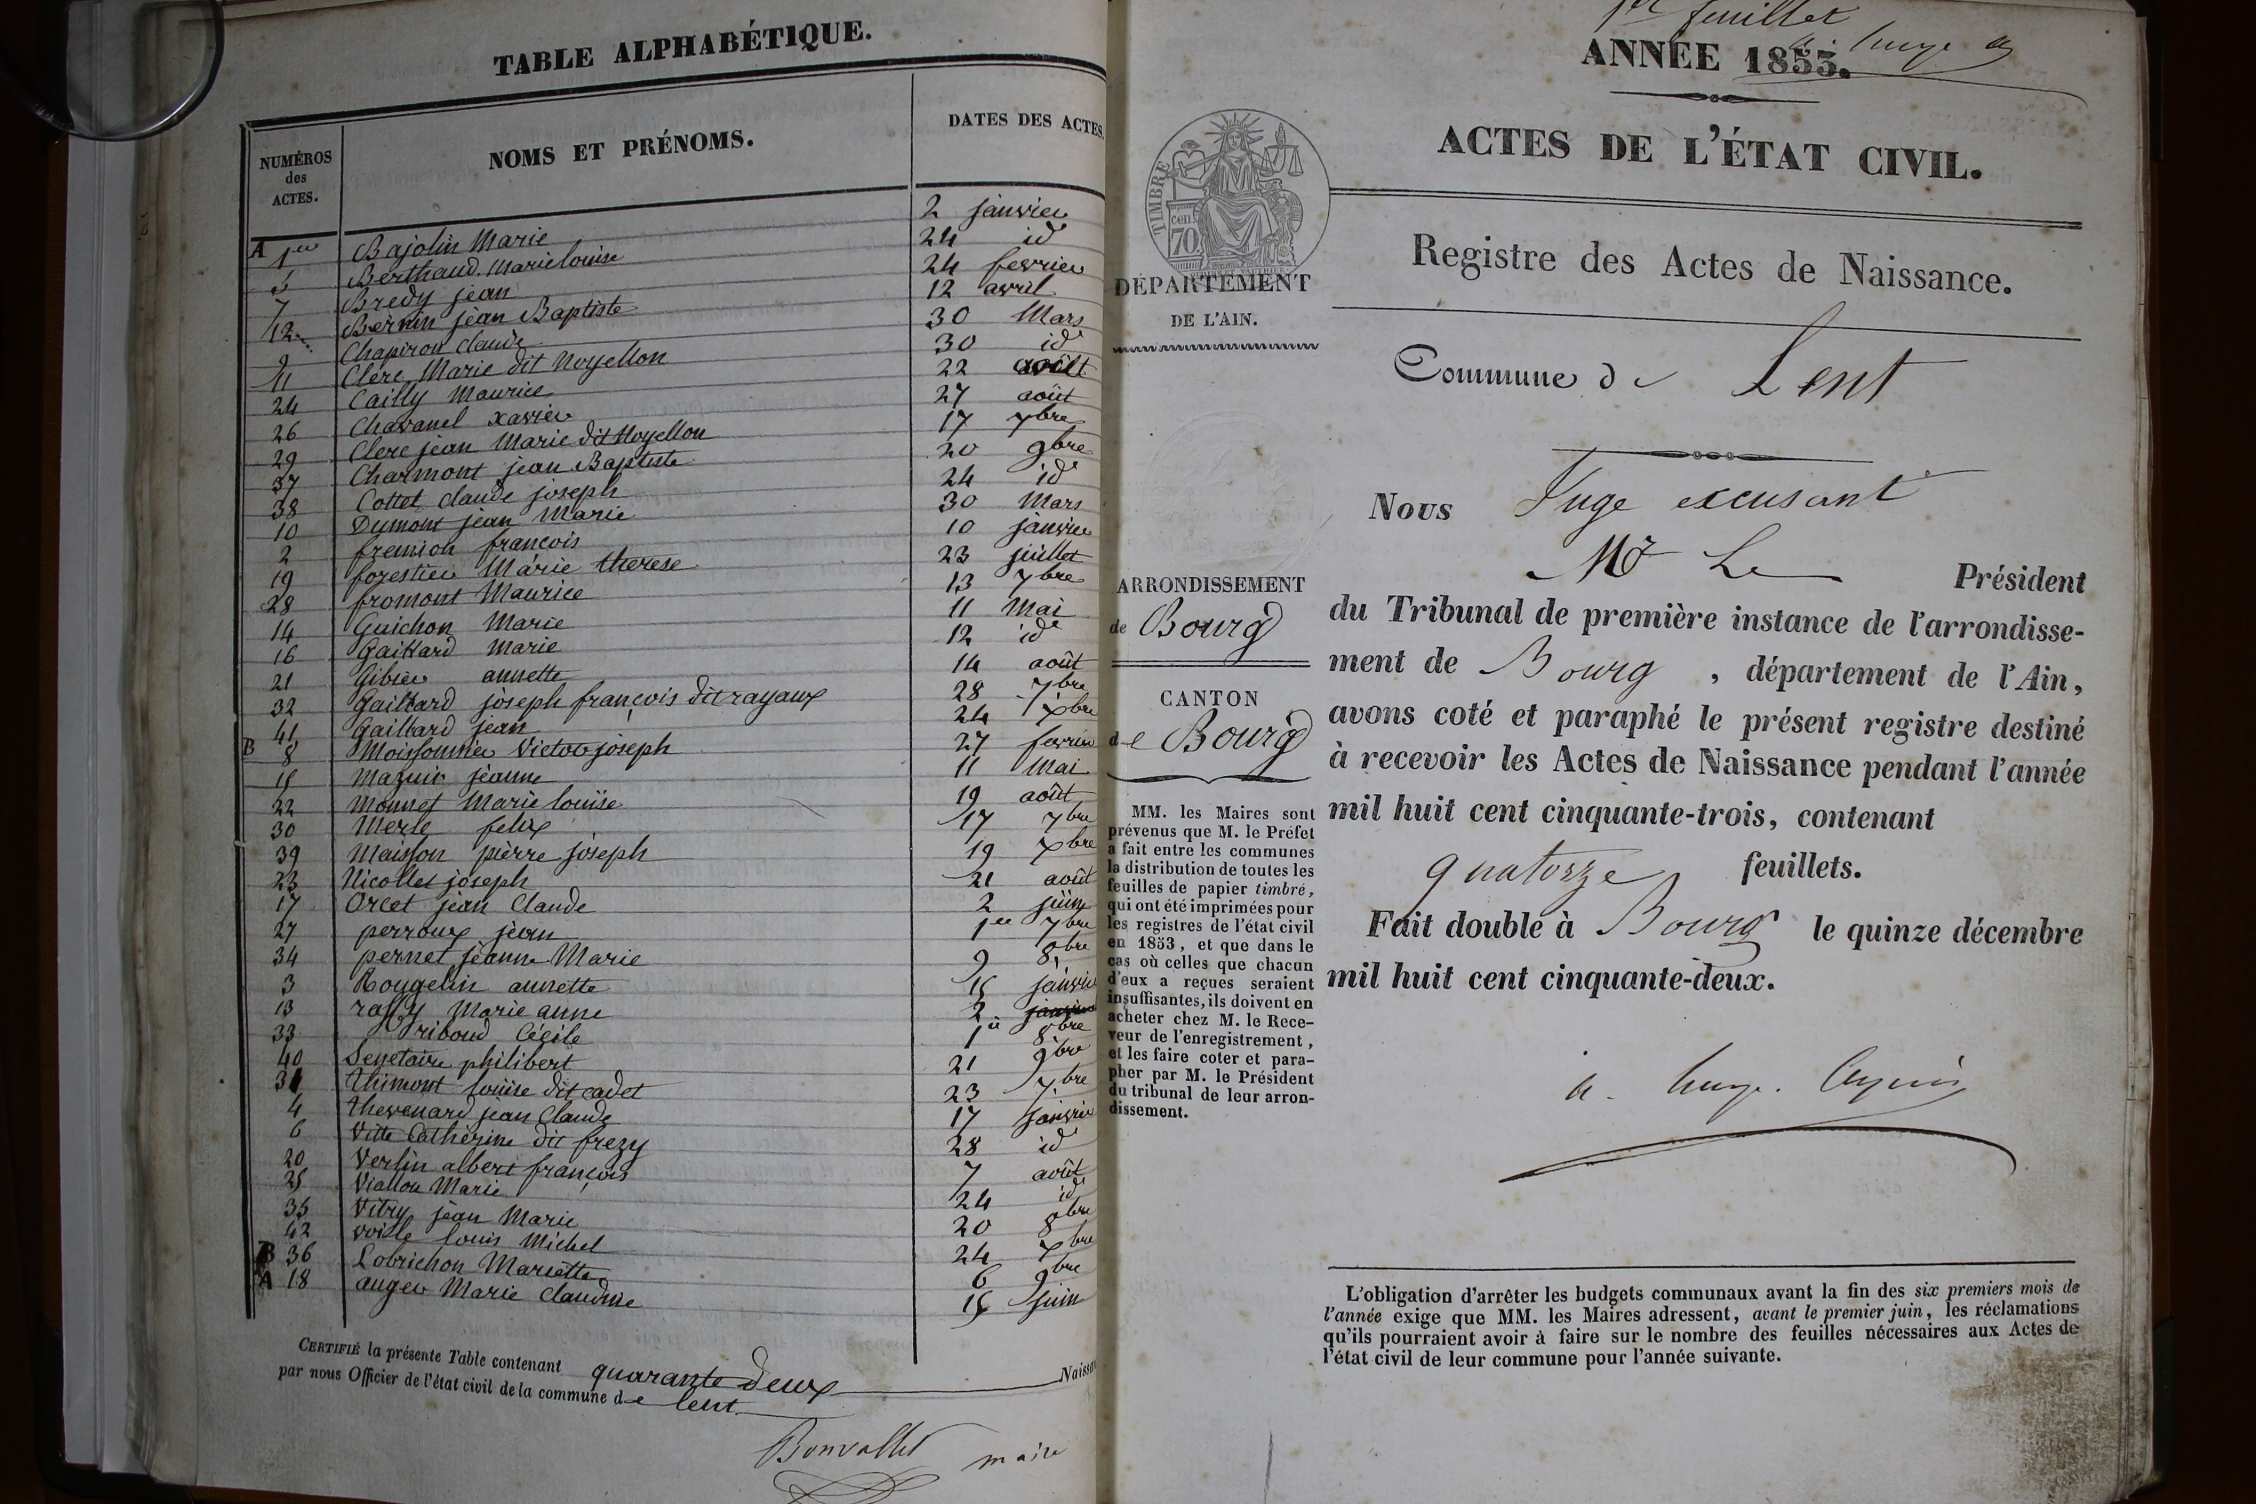 TABLE ALPHABÉTIQUE.
NUMÉROS
des
ACTES.
NOMS ET PRÉNOMS.
DATES DES ACTES.
A 1er Bajolin Marie 2 janvier
5 Berthaud Marie louise 24 id
7 Bredy jean 24 fevrier
12 Bernin jean Baptiste 12 avril
9 Chapiron Claude 30 Mars
11 Clerc Marie dit Noyellon 30 id
24 Cailly Maurice 22 août
26 Chavanel xavier 27 août
29 Clerc jean Marie dit Noyellon 17 7bre
37 Charmont jean Baptiste 20 9bre
38 Cottet claude joseph 24 id
10 Dumont jean Marie 30 Mars
2 fremion françois 10 janvier
19 forestier Marie therese 23 juillet
28 fromont Maurice 13 7bre
14 Guichon Marie 11 Mai
16 Gaillard Marie 12 id
21 Gibier annette 14 août
32 Gaillard joseph françois dit rayaux 28 7bre
41 Gaillard jean 24 xbre
B 8 Moissonnier Victor joseph 27 fevrier
15 Mazuir jeanne 11 Mai
22 Monnet Marie louise 19 août
30 Merle felix 17 7bre
39 Maisson pierre joseph 19 xbre
23 Nicollet joseph 21 août
17 Orcet jean Claude 2 juin
27 perroux jean 1er 7bre
34 pernet jeanne Marie 9 8bre
3 Rougelin annette 15 janvier
13 raffy Marie anne 2
33 riboud Cécile 1er 8bre
40 Senetaire philibert 21 9bre
31 thimont louise dit cadet 23 7bre
4 thevenard jean Claude 17 janvier
6 Vitte Catherine dit frezy 28 id
20 Verlin albert françois 7 août
25 Viallon Marie 24 id
35 Vitry jean Marie 20 8bre
42 voisle louis Michel 24 xbre
B 36 Lobrichon Mariette 6 9bre
A 18 auger Marie Claudine 15 juin
CERTIFIÉ la présente Table contenant quarante deux Naissa
par nous Officier de l'état civil de la commune de lent
Bonvallet maire
1er feuillet
ANNÉE 1853.
ACTES DE L'ÉTAT CIVIL.
TIMBRE
cen.
70
Registre des Actes de Naissance.
DÉPARTEMENT
DE L'AIN.
Commune de Lent
Nous Juge excusant
Mr Le Président
ARRONDISSEMENT
de Bourg
CANTON
de Bourg
du Tribunal de première instance de l'arrondisse-
ment de Bourg, département de l'Ain,
avons coté et paraphé le présent registre destiné
à recevoir les Actes de Naissance pendant l'année
mil huit cent cinquante-trois, contenant
quatorze feuillets.
Fait double à Bourg le quinze décembre
mil huit cent cinquante-deux.
MM. les Maires sont
prévenus que M. le Préfet
a fait entre les communes
la distribution de toutes les
feuilles de papier timbré,
qui ont été imprimées pour
les registres de l'état civil
en 1853, et que dans le
cas où celles que chacun
d'eux a reçues seraient
insuffisantes, ils doivent en
acheter chez M. le Rece-
veur de l'enregistrement,
et les faire coter et para-
pher par M. le Président
du tribunal de leur arron-
dissement.
L'obligation d'arrêter les budgets communaux avant la fin des six premiers mois de
l'année exige que MM. les Maires adressent, avant le premier juin, les réclamations
qu'ils pourraient avoir à faire sur le nombre des feuilles nécessaires aux Actes de
l'état civil de leur commune pour l'année suivante.